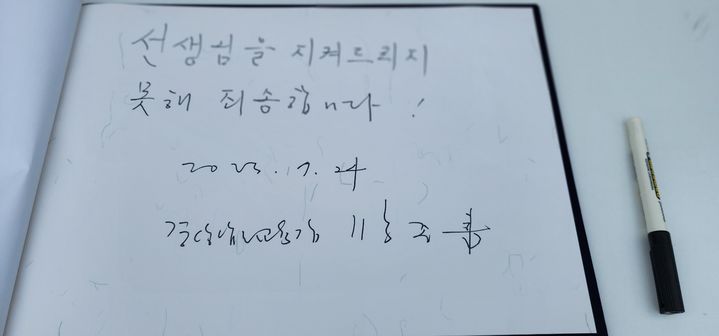 선생님을 지켜드리지
못해 죄송합니다!
2023. 7. 24
경상남도교육감 박종훈